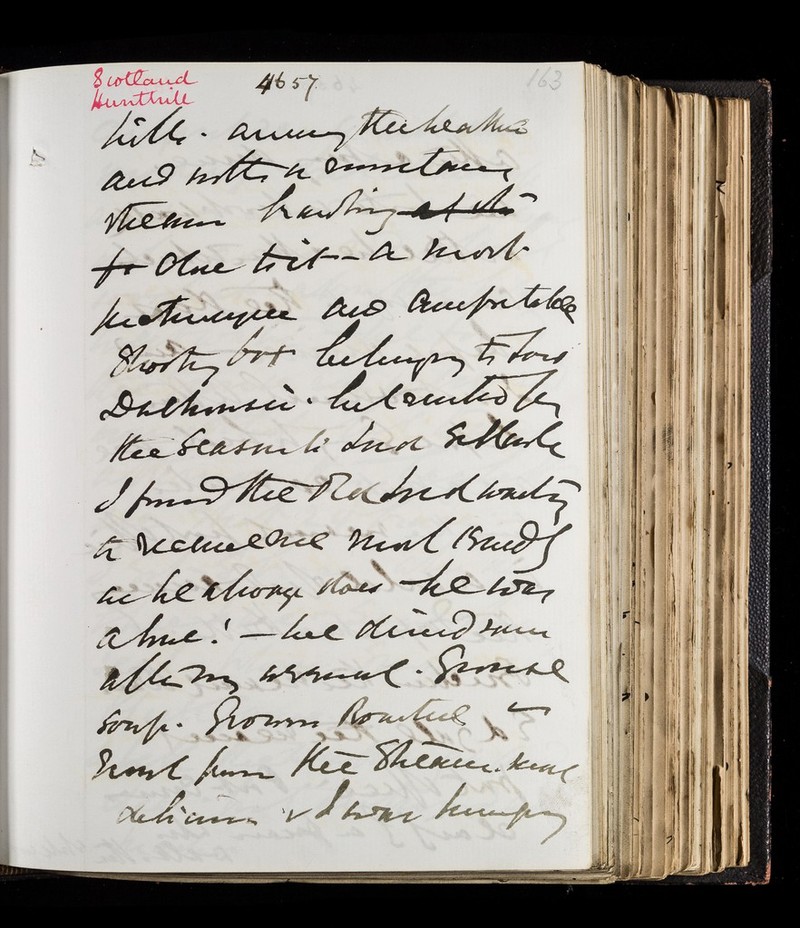 Scotland
Hunthill
4657
163
hills. among the heather
and with a mountain
stream brawling at the
to close to it – a most
picturesque and comfortable
Shooting box belonging to Lord
Dalhousie. but rented for
the Season to Lord
I found the Old Lord waiting
to receive me most kindly
as he always does – he was
alone! – we dined soon
after my arrival. Grouse
soup. Grouse Roasted
Trout from the Stream. most
delicious & I was hungry